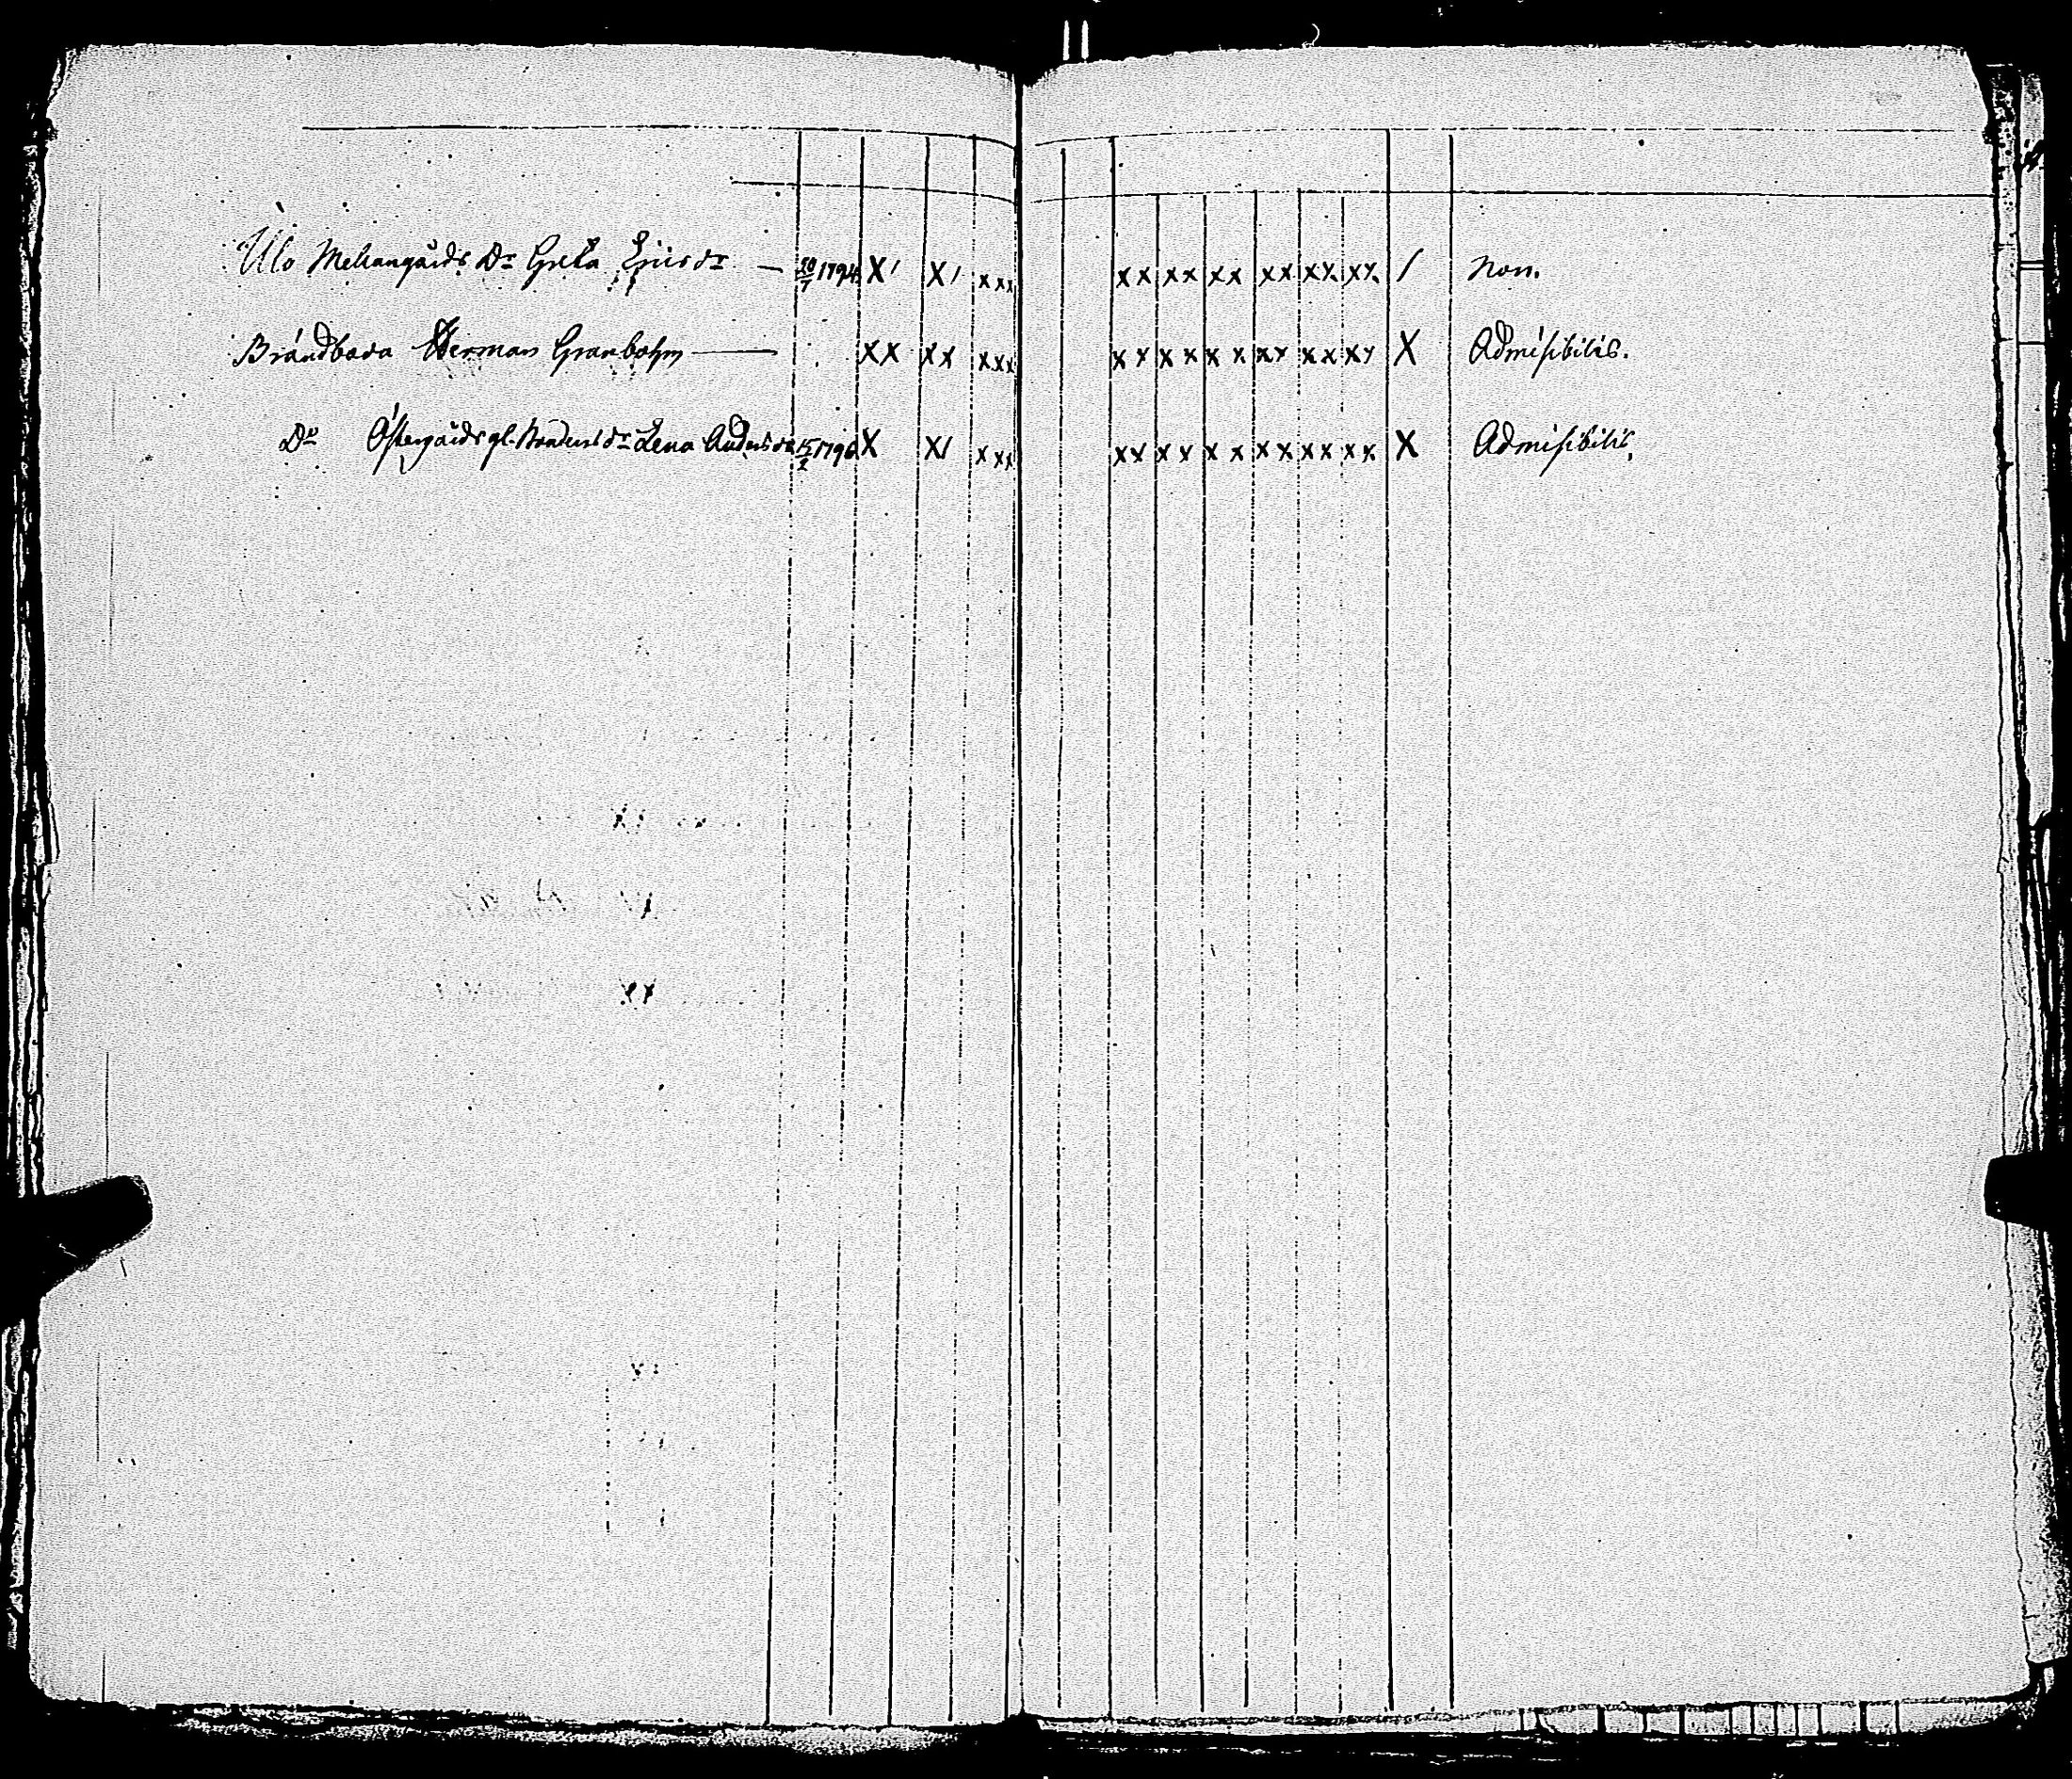 Ulo Mellangårds Dr Greta Ersdr — 20/7 1794 X/ X/ xxx xx xx xx xx xx xx / Non.
Brändbova Herman Granbohm — XX XX xxx xx xx xx xx xx xx X Admissibilis.
Do Östergårds gl. Bondens dr Lena Andersdr 15/2 1796 X X/ xxx xx xx xx xx xx xx X Admissibilis.